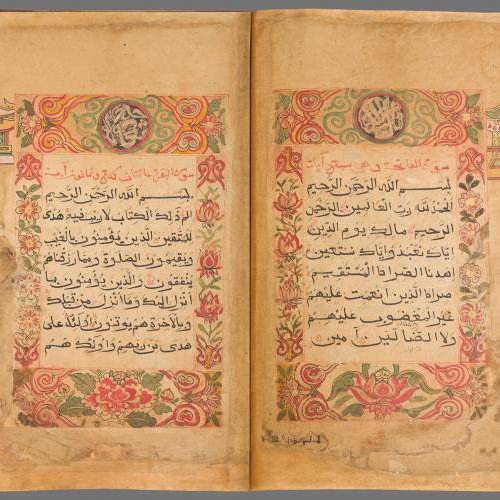 سورة الفاتحة سبع آيات
بسم الله الرحمن الرحيم
الحمد لله رب العالمين الرحمن
الرحيم مالك يوم الدين
اياك نعبد واياك نستعين
اهدنا الصراط المستقيم
صراط الذين انعمت عليهم
غير المغضوب عليهم
ولا الضالين آمين
سورة البقرة مائتان وثمانون آية
بسم الله الرحمن الرحيم
الم ذلك الكتاب لا ريب فيه هدى
للمتقين الذين يؤمنون بالغيب
ويقيمون الصلوة ومما رزقناهم
ينفقون والذين يؤمنون بما
أنزل اليك وما أنزل من قبلك
وبالآخرة هم يوقنون اولئك على
هدى من ربهم واولئك هم